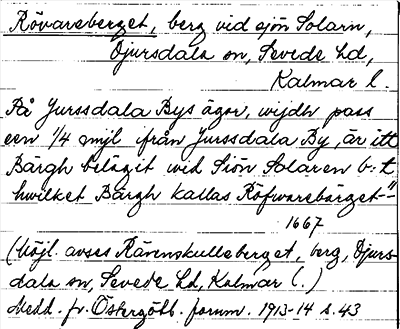 Rövareberget, berg vid sjön Solarn,
Djursdala sn, Sevede hd,
Kalmar l.
På Jurssdala Bys ägor, wijdh pass
een 1/4 mijl ifrån Jurssdala By, är itt
Bärgh belägit wed Siön Solaren b:t
hwilket Bärgh kallas Röfwarebärget-"
1667
(Möjl. avses Rävenskulleberget, berg, Djurs-
dala sn, Sevede hd, Kalmar l.)
Medd. fr. Östergötl. fornm. 1913-14 s. 43